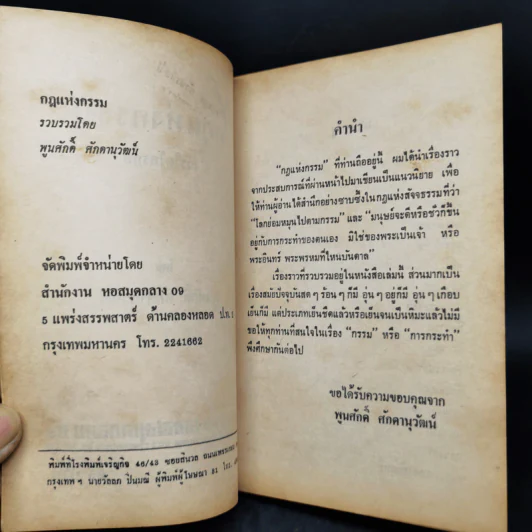 กฎแห่งกรรม
รวบรวมโดย
พูนศักดิ์ ศักดานุวัฒน์
จัดพิมพ์จำหน่ายโดย
สำนักงาน หอสมุดกลาง 09
5 แพร่งสรรพสาตร์ ด้านคลองหลอด ป.ณ.
กรุงเทพมหานคร โทร. 2241662
พิมพ์ที่โรงพิมพ์เจริญกิจ 46/43 ซอยสีนวล ถนน
กรุงเทพ ฯ นายวัลลภ ปิ่นมณี ผู้พิมพ์ผู้โฆษณา 21 โว.
คำนำ
"กฎแห่งกรรม" ที่ท่านถืออยู่นี้ ผมได้นำเรื่องราว
จากประสบการณ์ที่ผ่านหน้าไปมาเขียนเป็นแนวนิยาย เพื่อ
ให้ท่านผู้อ่านได้สำนึกอย่างซาบซึ้งในกฎแห่งสัจจธรรมที่ว่า
"โลกย่อมหมุนไปตามกรรม" และ "มนุษย์จะดีหรือชั่วก็ขึ้น
อยู่กับการกระทำของตนเอง มิใช่ของพระเป็นเจ้า หรือ
พระอินทร์ พระพรหมที่ไหนบันดาล"
เรื่องราวที่รวบรวมอยู่ในหนังสือเล่มนี้ ส่วนมากเป็น
เรื่องสมัยปัจจุบันสด ๆ ร้อน ๆ ก็มี อุ่น ๆ อยู่ก็มี อุ่น ๆ เกือบ
เย็นก็มี แต่ประเภทเย็นชืดแล้วหรือเย็นจนเป็นหิมะแล้วไม่มี
ขอให้ทุกท่านที่สนใจในเรื่อง "กรรม" หรือ "การกระทำ"
พึงศึกษากันต่อไป
ขอได้รับความขอบคุณจาก
พูนศักดิ์ ศักดานุวัฒน์